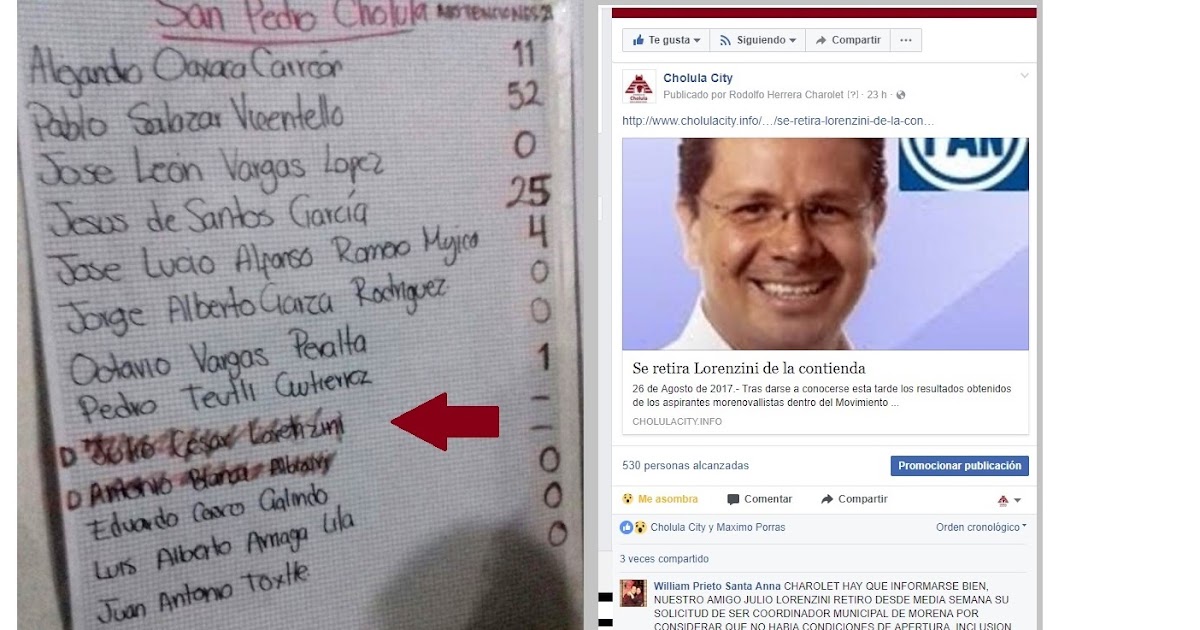 San Pedro Cholula ABSTENCIONES 2
Alejandro Oaxaca Carreón 11
Pablo Salazar Vicentello 52
Jose León Vargas Lopez 0
Jesus de Santos García 25
Jose Lucio Alfonso Romao Mujica 4
Jorge Alberto Garza Rodriguez 0
Octavio Vargas Peralta 0
Pedro Teutli Gutierrez 1
D Julio César Lorenzini –
D Antonio –
Eduardo Galindo 0
Luis Alberto Arriaga Lila 0
Juan Antonio Toxtle 0
Te gusta Siguiendo Compartir ...
Cholula City
Publicado por Rodolfo Herrera Charolet [?] · 23 h ·
http://www.cholulacity.info/…/se-retira-lorenzini-de-la-con…
PAN
Se retira Lorenzini de la contienda
26 de Agosto de 2017.- Tras darse a conocerse esta tarde los resultados obtenidos
de los aspirantes morenovallistas dentro del Movimiento ...
CHOLULACITY.INFO
530 personas alcanzadas Promocionar publicación
Me asombra Comentar Compartir
Cholula City y Maximo Porras Orden cronológico
3 veces compartido
William Prieto Santa Anna CHAROLET HAY QUE INFORMARSE BIEN,
NUESTRO AMIGO JULIO LORENZINI RETIRO DESDE MEDIA SEMANA SU
SOLICITUD DE SER COORDINADOR MUNICIPAL DE MORENA POR
CONSIDERAR QUE NO HABIA CONDICIONES DE APERTURA, INCLUSION